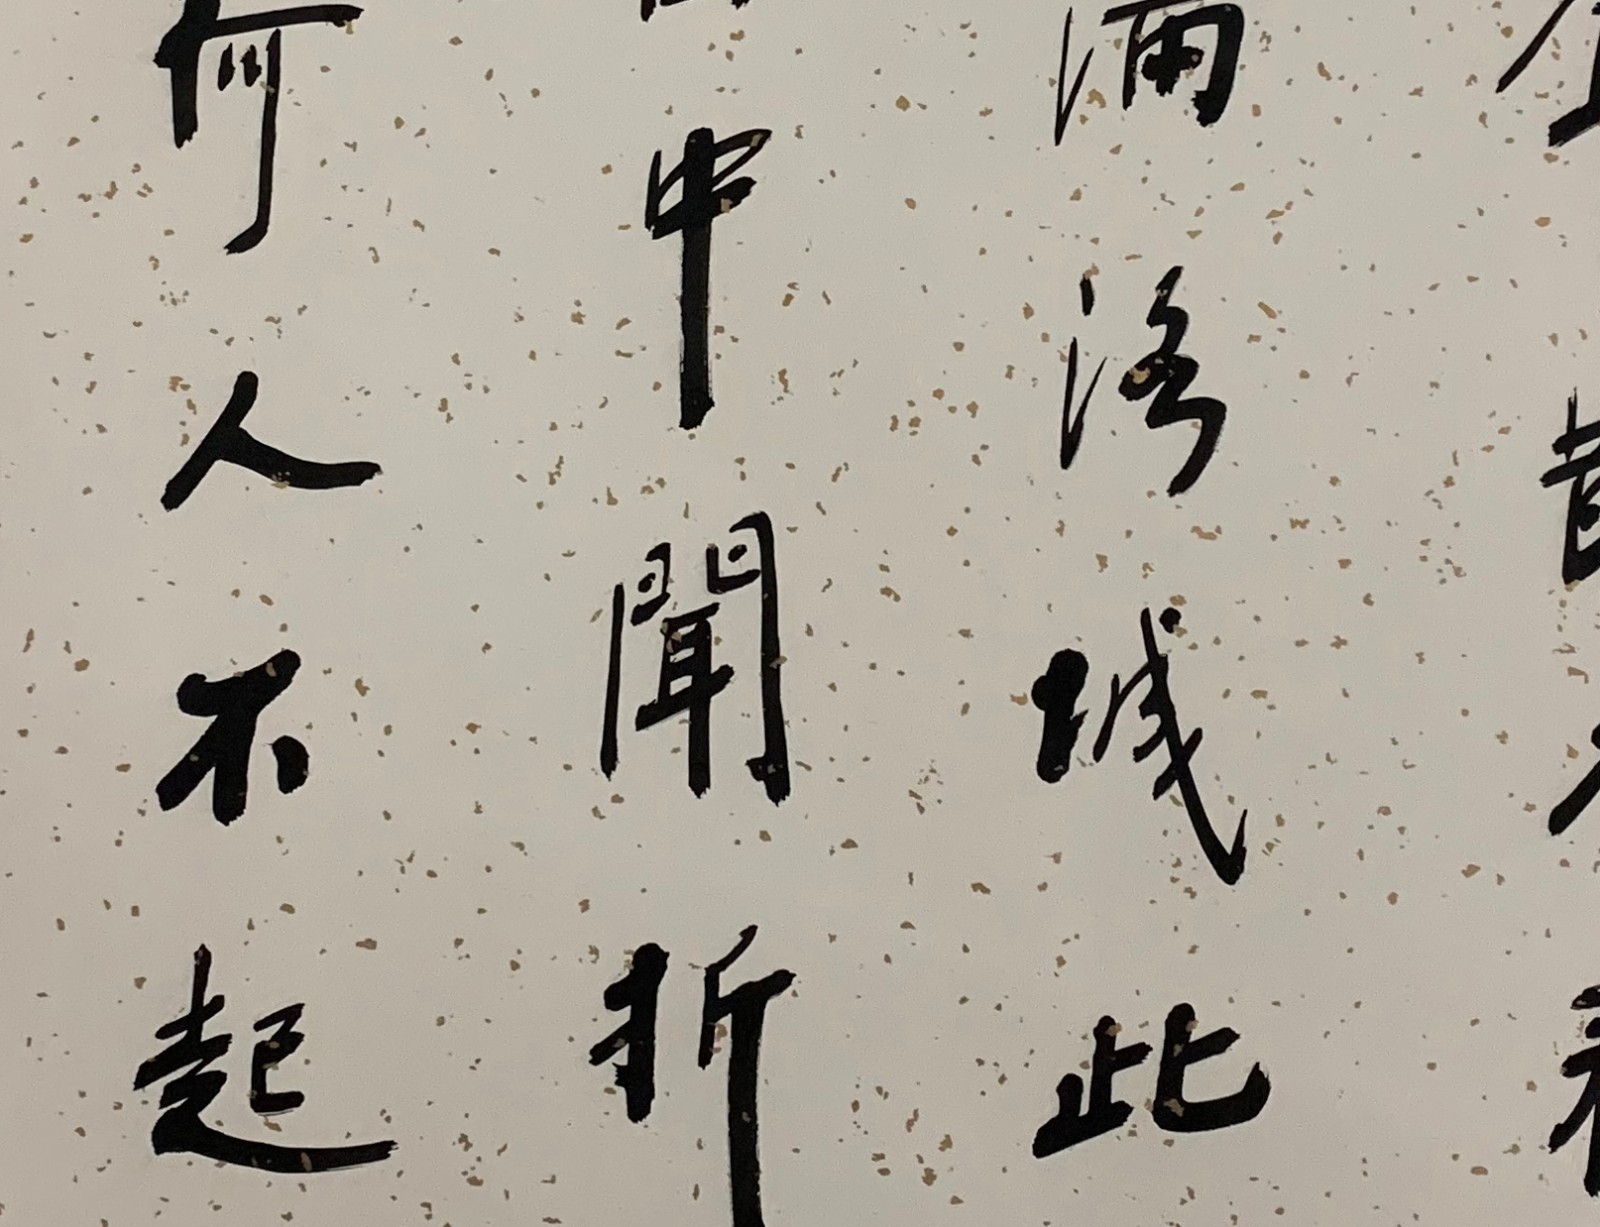 散
滿洛城此
中聞折
何人不起